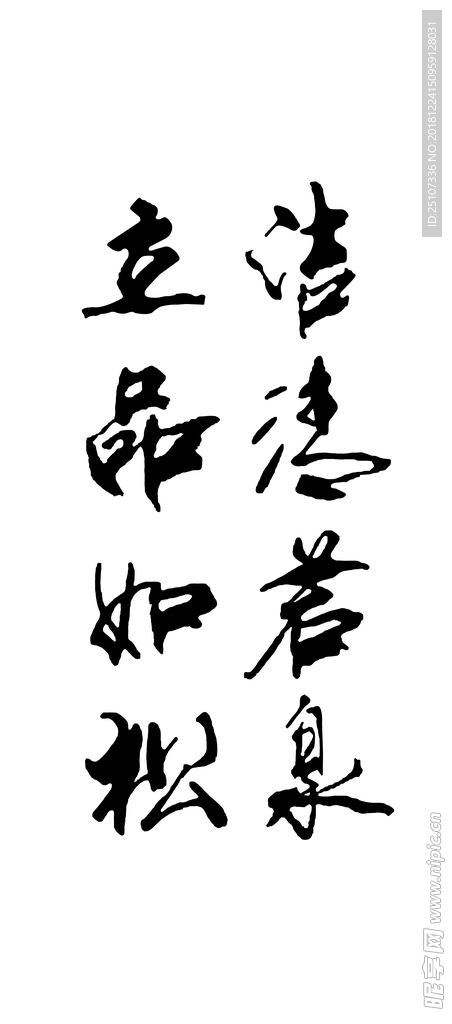 洁德若泉
立品如松
ID:25107336 NO:20181224150959128031
昵享网 www.nipic.cn